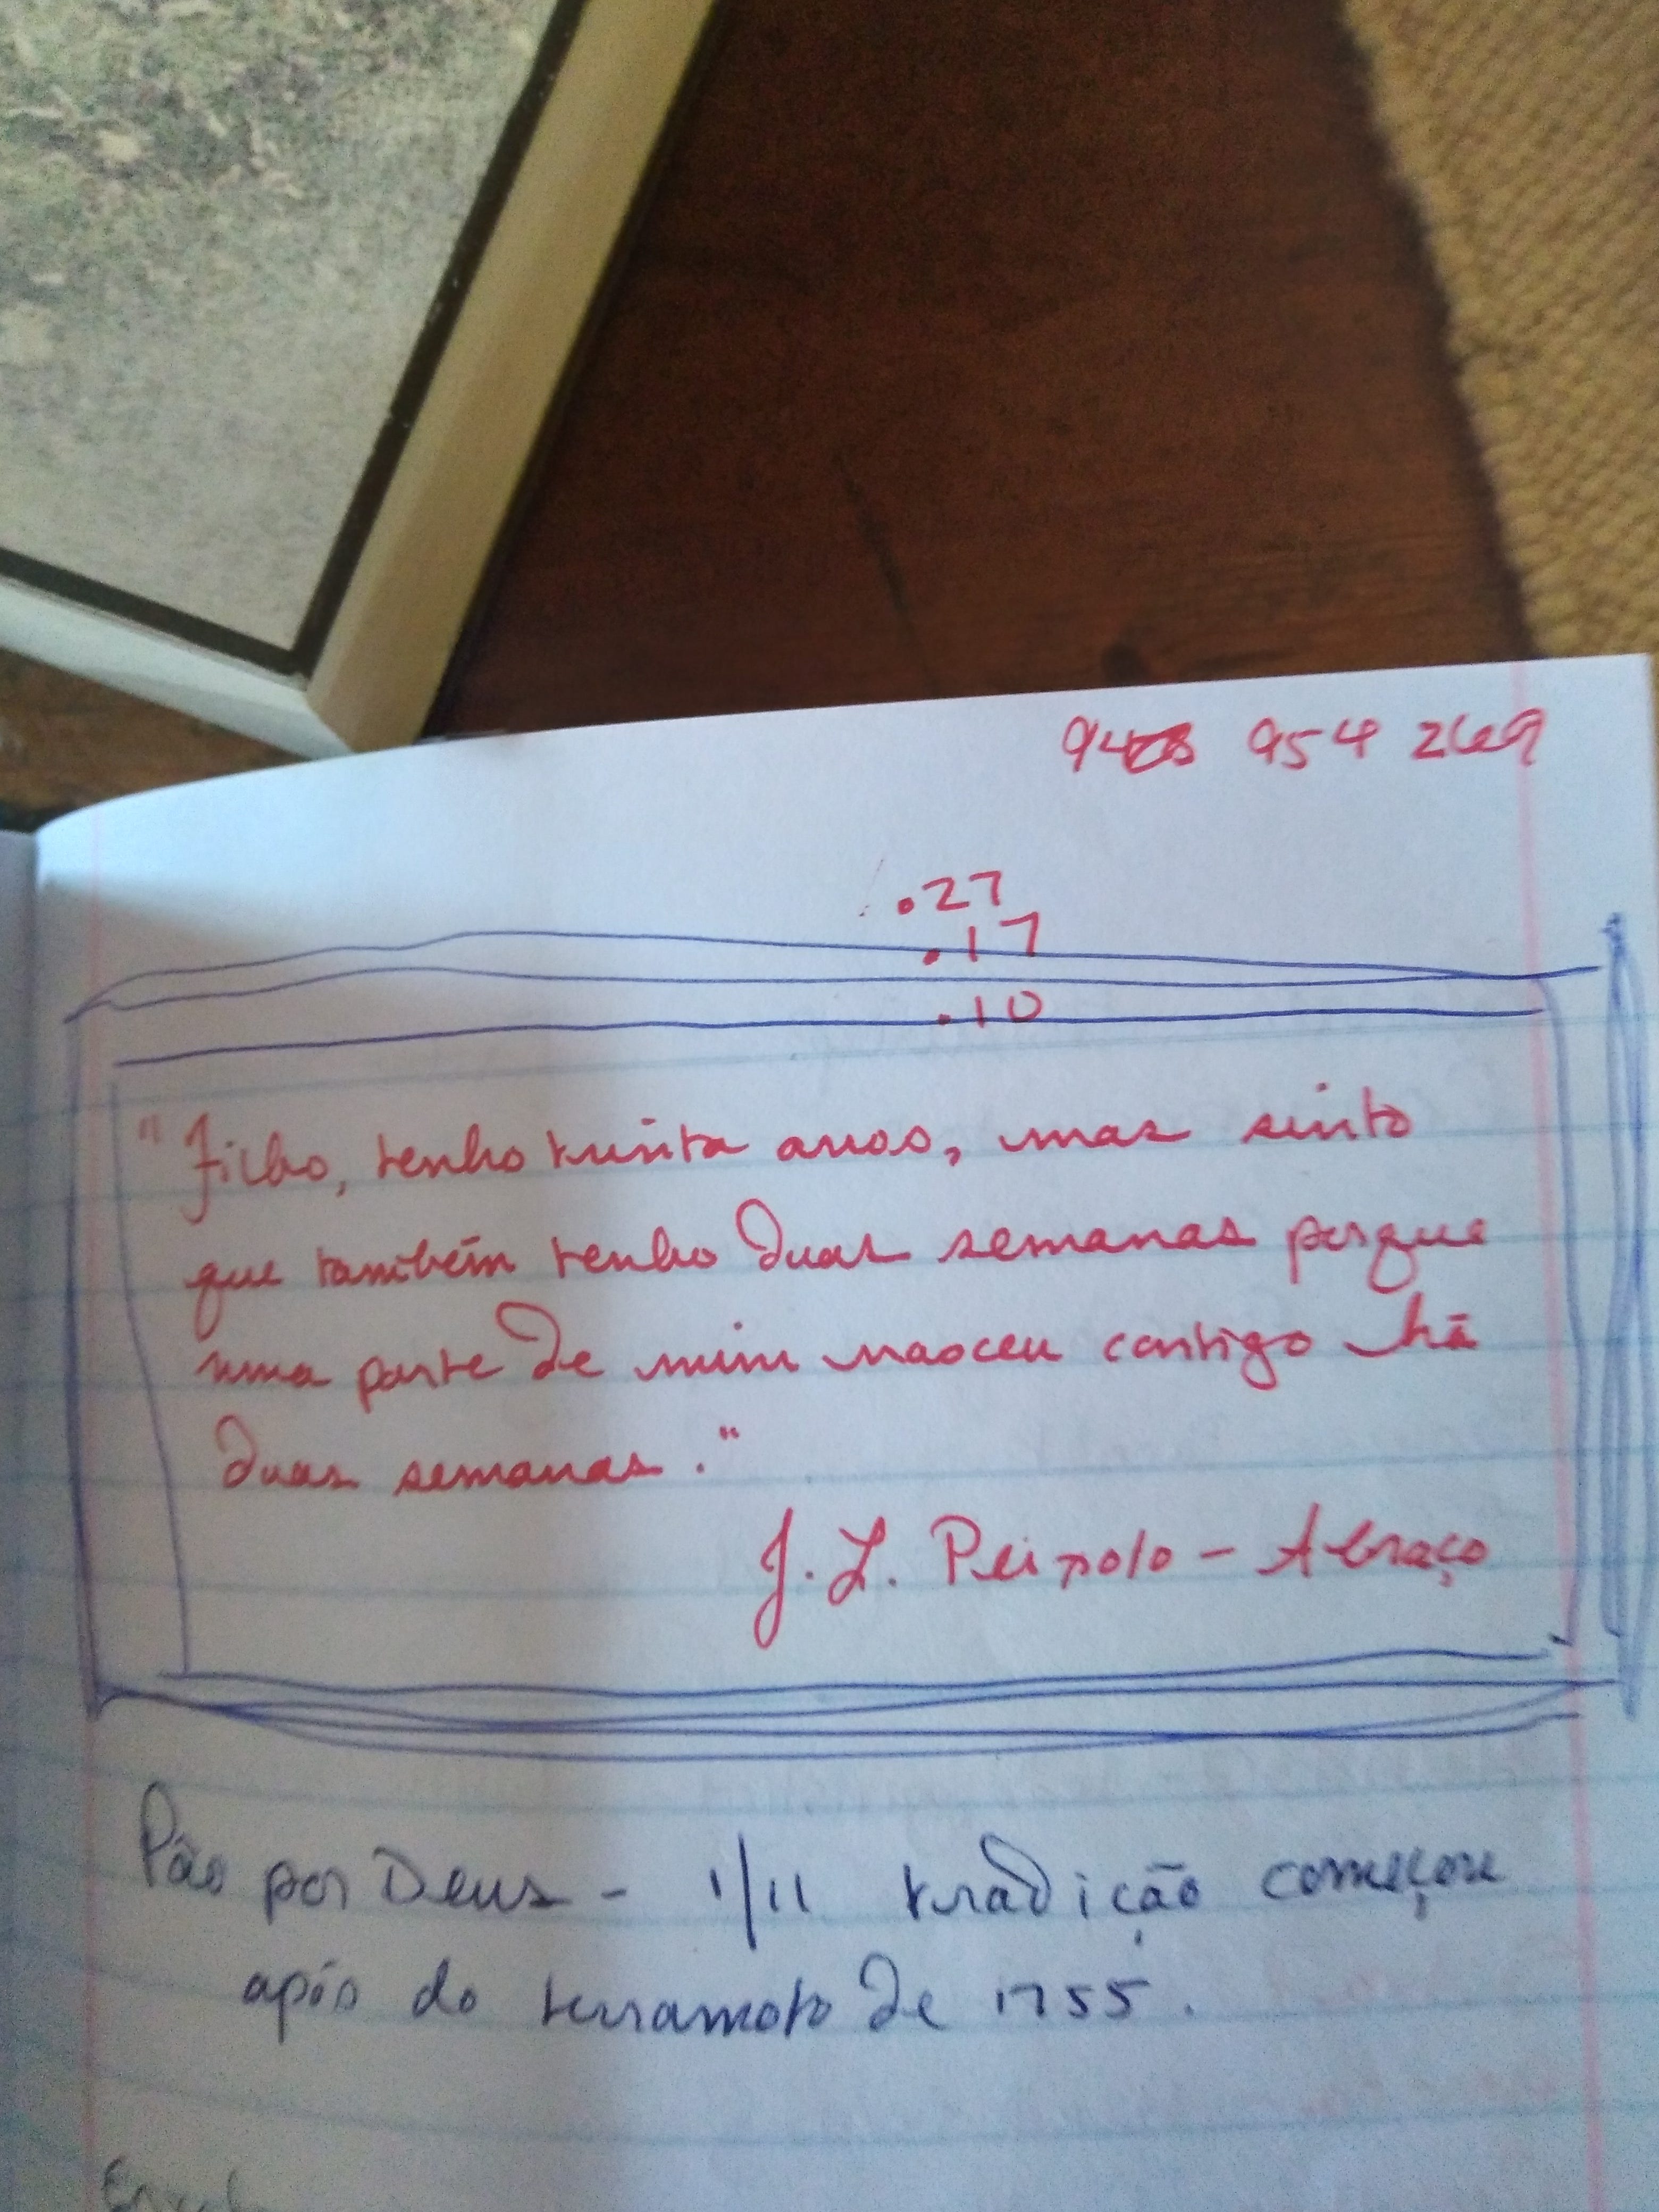 954 269
.27
.17
.10
"Filho, tenho trinta anos, mas sinto
que também tenho duas semanas porque
uma parte de mim nasceu contigo há
duas semanas."
J. L. Peixoto - Abraço
Pão por Deus - 1/11 tradição começou
após do terramoto de 1755.